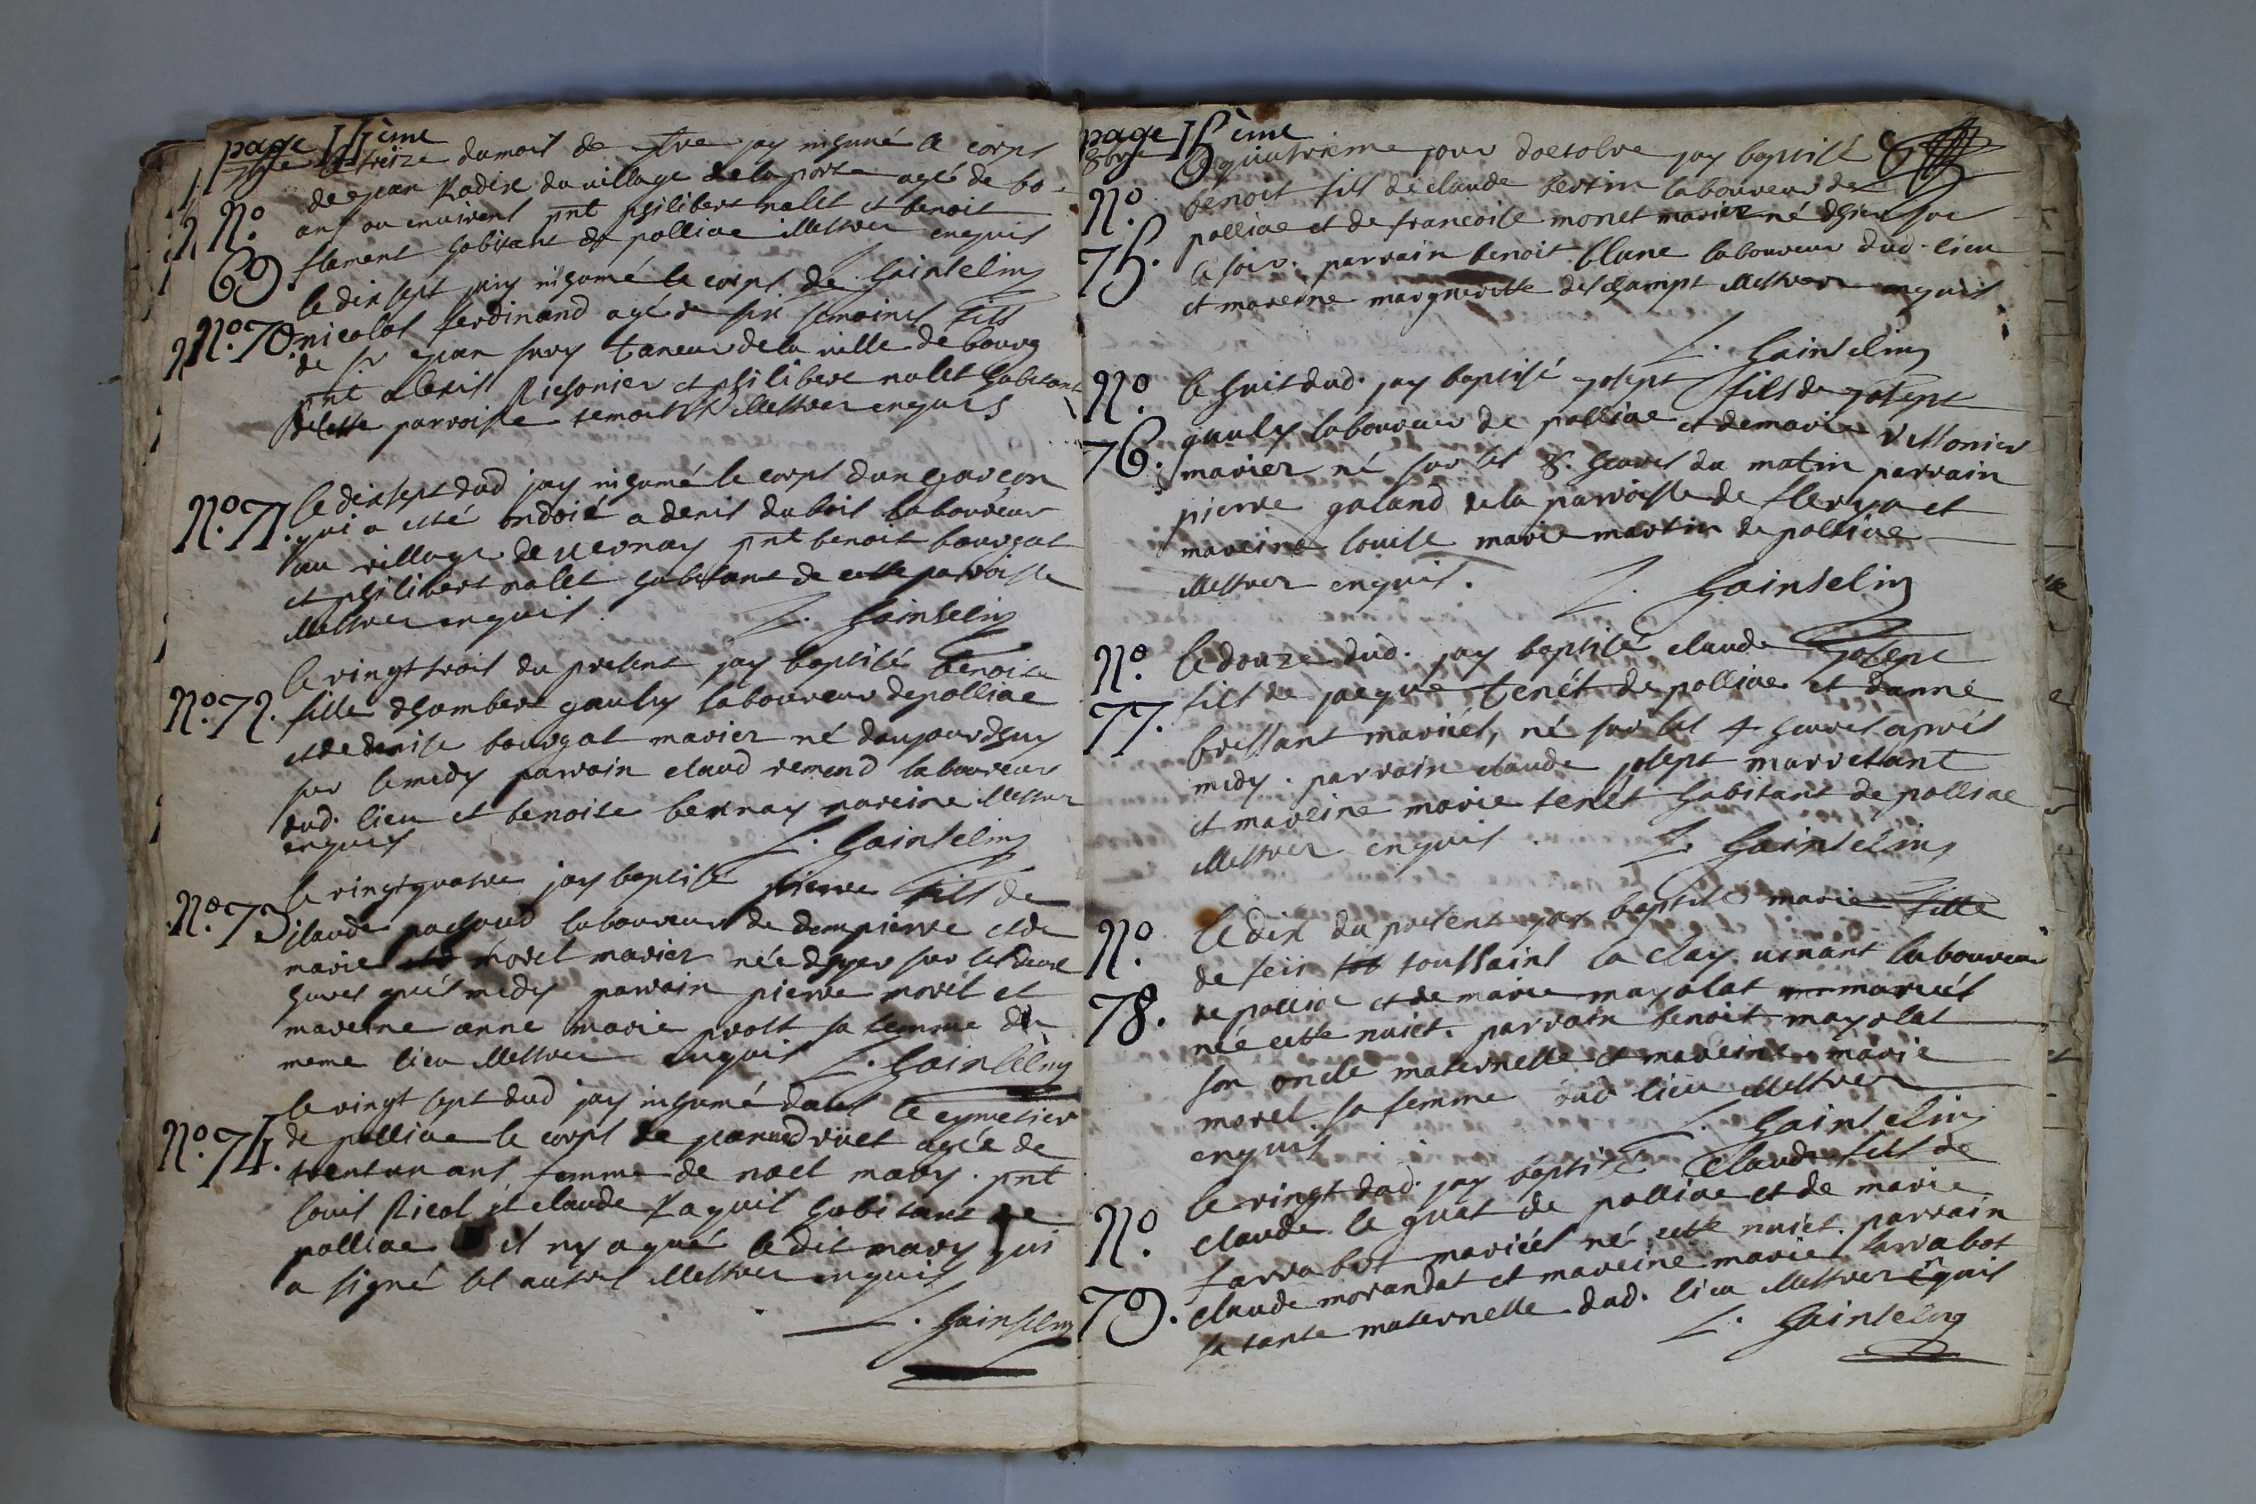 page 14ème
le treize du mois de 7bre jay inhumé le corps
de jean Radix du village de la porte agé de 60
ans ou environt pnt philibert nalet et benoit
flament habitans de polliac illettrez enquis
N° 69
L. hainselin
le dixsept jay inhumé le corps de
N° 70. nicolas ferdinand agé de six semaines fils
de sr jean taneur de la ville de bourg
pnt alexis Richonier et philibert nalet habitans
de cette parroisse temoins illettrez enquis
N° 71. le dixsept dud jay inhumé le corps dun garcon
qui a esté ondoié a denis dubois laboureur
au village de vernay pnt benoit bourgat
et philibert nalet habitans de cette parroisse
illettrez enquis L. hainselin
N° 72. le vingt trois du present jay baptisé benoite
fille dhumbert gauly laboureur de polliac
et de denise bourgat mariez né daujourdhuy
sur le midy parrain claud remond laboureur
dud. lieu et benoite bernay mareine illettrez
enquis L. hainselin
N° 73. le vingtquatre jay baptisé pierre fils de
claude pachoud laboureur de dompierre et de
marie morel mariez née dhyer sur les deux
heures apres midy parrain pierre morel et
mareine anne marie prost sa femme du
meme lieu illettrez enquis L. hainselin
N° 74. le vingt sept dud jay inhumé dans le cymetier
de polliac le corps de agée de
trentun ans femme de noel mary. pnt
louis Ricol et claude habitans de
polliac il ny a que ledit mary qui
a signé les autres illettrez enquis
L. hainselin
page 15ème
8bre
N° 75. Le quatrieme jour doctobre jay baptisé
benoit fils de claude bertin laboureur de
polliac et de francoise monet mariez né dhier sur
le soir. parrain benoit blanc laboureur dud. lieu
et mareine margueritte deschamps illettrez enquis
L. hainselin
N° 76. le huit dud. jay baptisé joseph fils de joseph
gauly laboureur de polliac et de marie vissonier
mariez né sur les 8. heures du matin parrain
pierre galand de la parroisse de fleria et
mareine louise marie martin de polliac
illettrez enquis. L. hainselin
N° 77. le douze dud. jay baptisé claude joseph
fils de jacque tenét de polliac et danne
bressant mariéz, né sur les 4 heures aprés
midy. parrain claude joseph marretant
et mareine marie tenét habitans de polliac
illettrez enquis. L. hainselin
N° 78. le dix du present jay baptisé marie fille
de feü toussaint la clay. vivant laboureur
de polliac et de marie mayolat mariéz
née cette nuict. parrain benoit mayolat
son oncle maternelle et mareine marie
morel sa femme dud lieu illettrez
enquis L. hainselin
N° 79. le vingt dud. jay baptisé claude fils de
claude le guat de polliac et de marie
farrabot mariéz né cette nuict. parrain
claude morandat et mareine marie farrabot
sa tante maternelle dud. lieu illettrez equis
L. hainselin